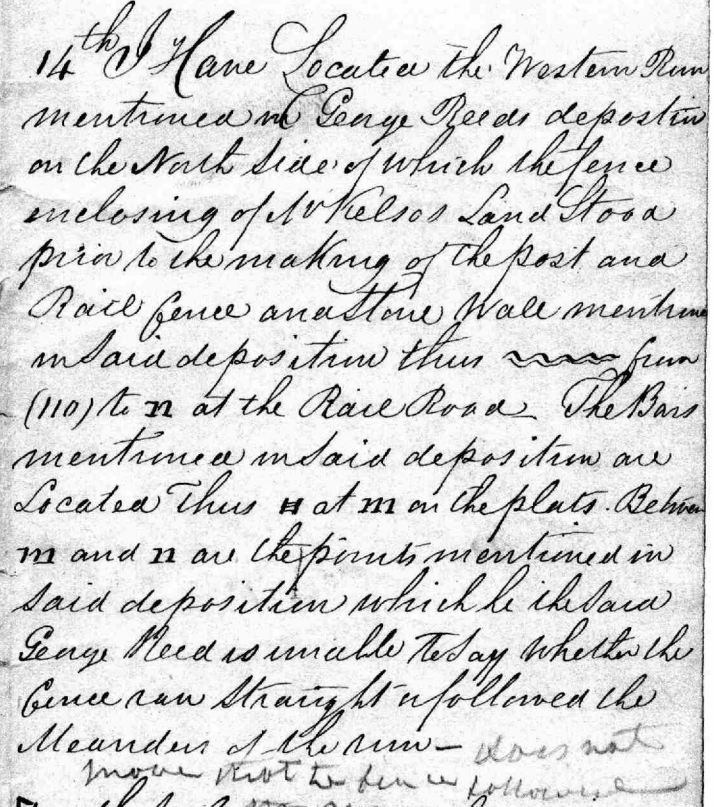 14th I Have Located the Western Run
mentioned in George Reeds deposition
on the North Side of which the fence
enclosing of McKelsos Land Stood
prior to the making of the post and
Rail fence and Stone Wall mentioned
in Said deposition thus ~~~~ from
(110) to n at the Rail Road - The Bars
mentioned in Said deposition are
Located Thus at m on the plats. Between
m and n are the points mentioned in
Said deposition which he the Said
George Reed is unable to Say whether the
fence ran Straight or followed the
Meanders of the run - does not
that the fence followed